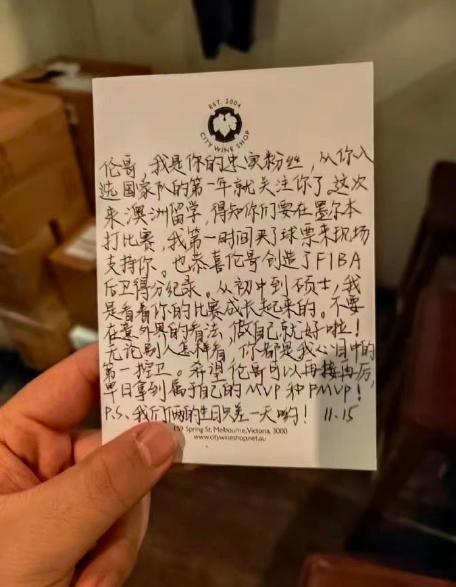 EST. 2004
CITY WINE SHOP
伦哥，我是你的忠实粉丝，从你入
选国家队的第一年就关注你了。这次
来澳洲留学，得知你们要在墨尔本
打比赛，我第一时间买了球票来现场
支持你。也恭喜伦哥创造了FIBA
后卫得分纪录。从初中到硕士，我
是看着你的比赛成长起来的。不要
在意外界的看法，做自己就好啦！
无论别人怎样看，你都是我心目中的
第一控卫。希望伦哥可以再接再厉，
早日拿到属于自己的MVP和FMVP！
P.S.我们俩的生日只差一天哟！ 11.15
159 Spring St, Melbourne, Victoria, 3000
www.citywineshop.net.au